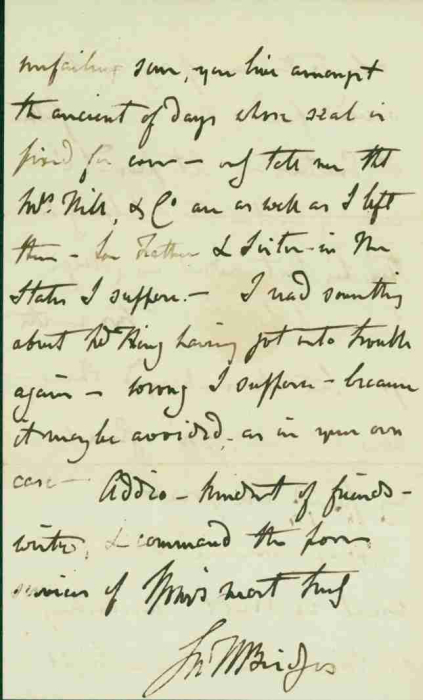 unfailing  you live amongst
the ancient of days whose seat is
fixed for ever – only tell me that
Mrs. Mill, & Co are as well as I left
them – her Father & Sister in the
States I suppose. – I read something
about Mr King having got into trouble
again – wrong I suppose – because
it may be avoided, as in your own
case – Addio – kindest of friends –
write, & command the poor
services of Yours most truly